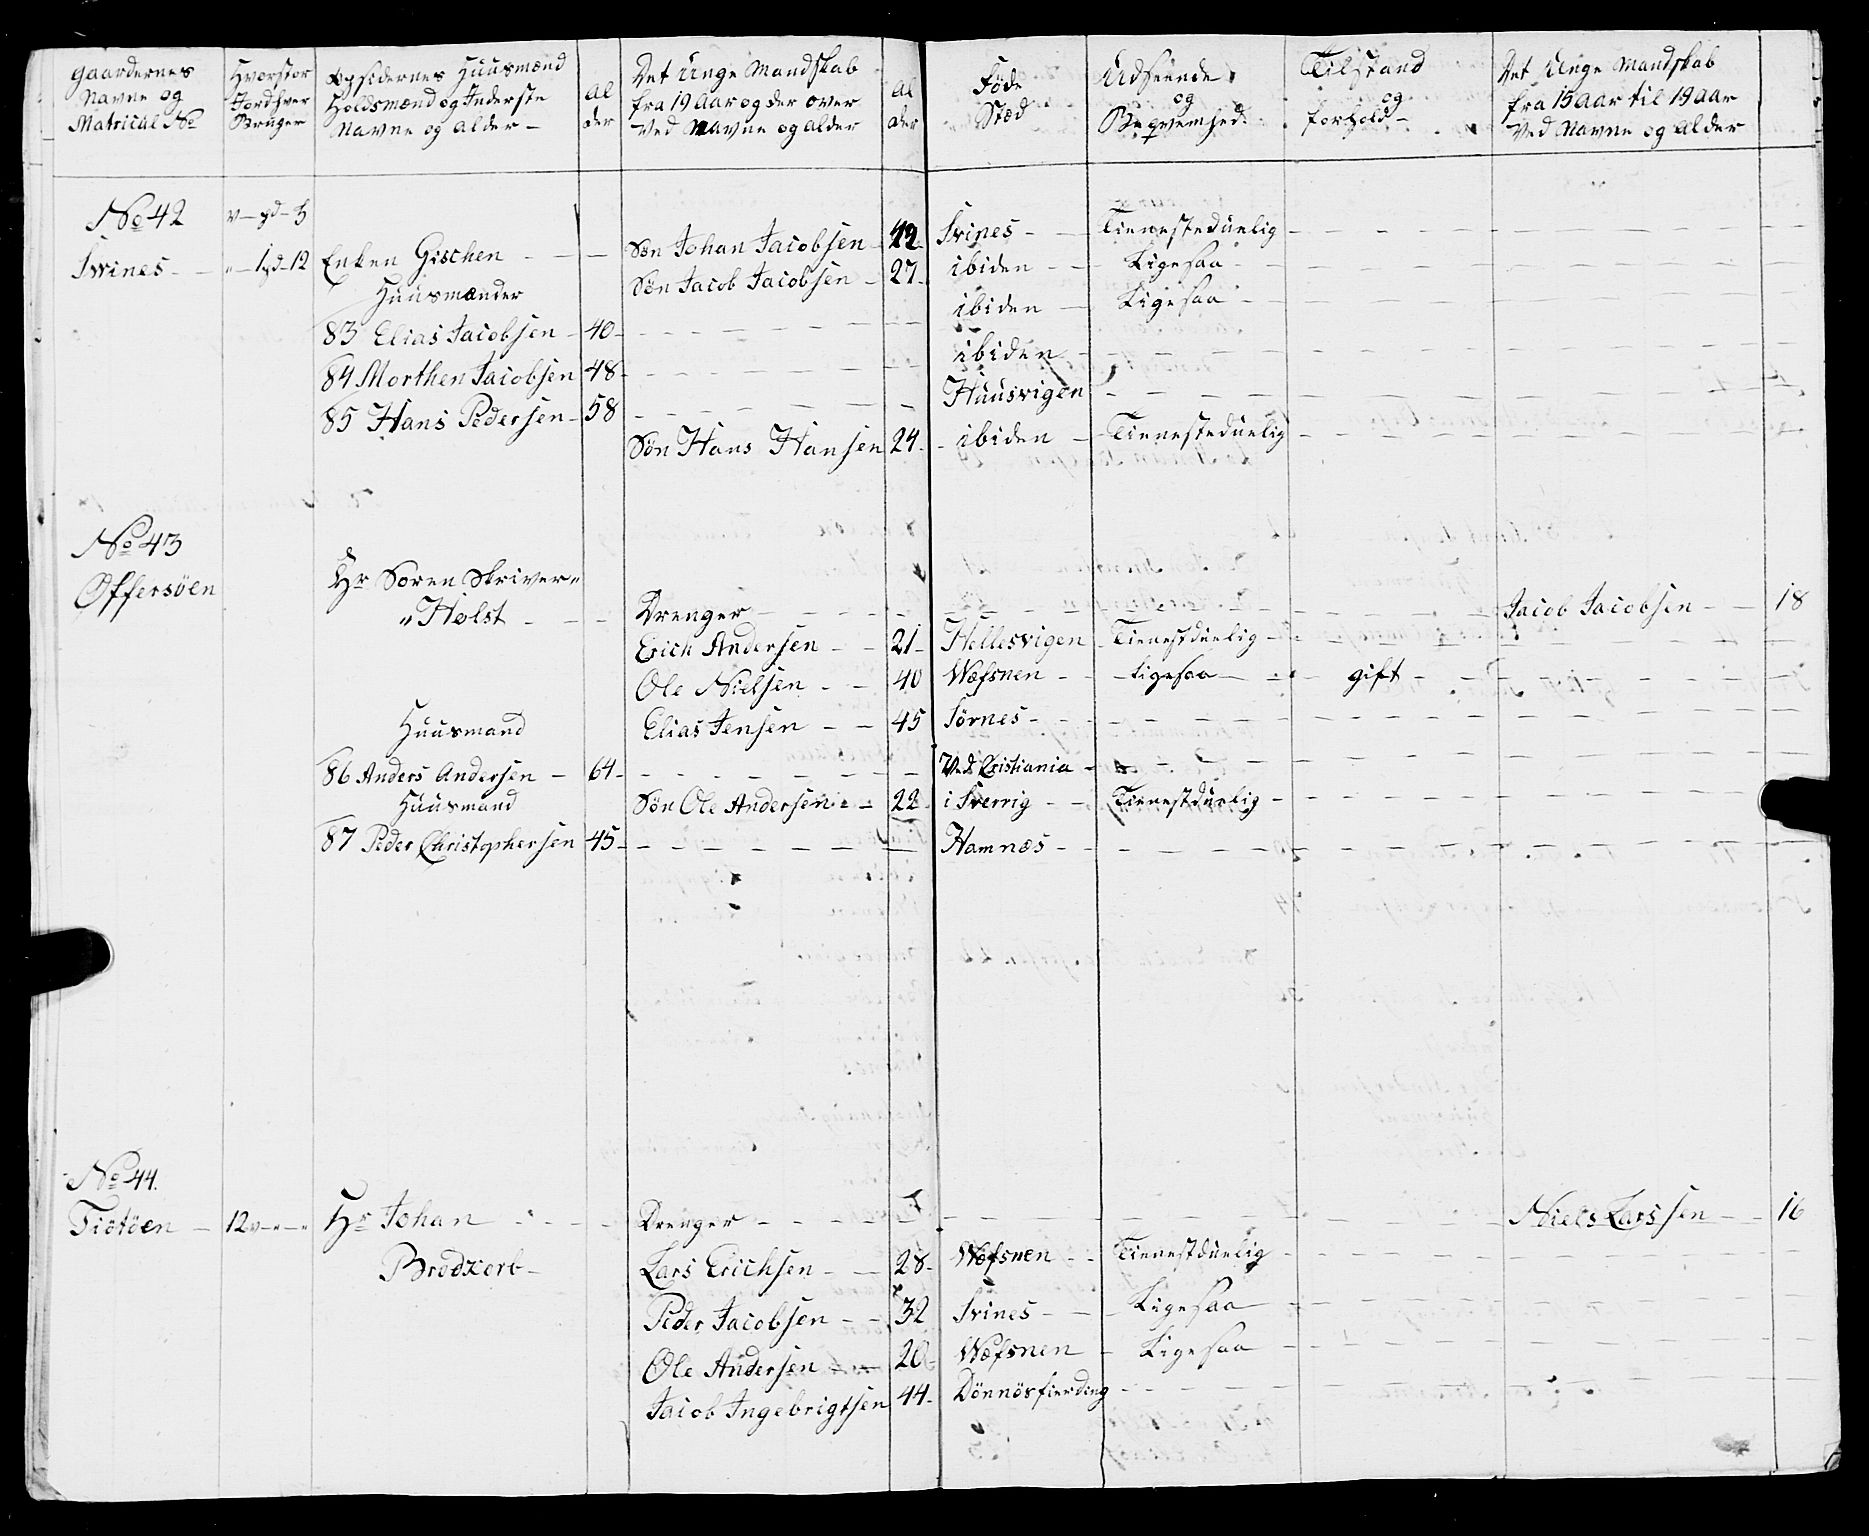 Gaardernes Navne og Matricul No | Hvorstor Jordhver Bruger | Opsidernes Huusmænd Holdsmænd og Inderste Navne og alder — | Al der | Det Unge Mandskab fra 19 Aar og der over Ved Navne og alder | Al der | Føde Stæd | Udseende og Beqvemhed | Tilstand og forhold — | Det Unge Mandskab fra 15 Aar til 19 Aar Ved Navne og alder
No 42
Svines — 1 pd — 12 Enken Gischen — Søn Johan Jacobsen Svines — Tienestduelig
Søn Jacob Jacobsen — 27 ibiden — Ligesaa
Huusmænder
83 Elias Jacobsen — 40 — ibiden — Ligesaa
84 Morthen Jacobsen 48 — ibiden
85 Hans Pedersen — 58 — Huusvigen
Søn Hans Hansen 24 — ibiden — Tienesteduelig
No 43
Offersöen
Hr Soren Skriver
Holst — Drenger — Jacob Jacobsen — 18
Erich Andersen — 21 — Hellesvigen Tienestduelig
Ole Nielsen — 40 Wefsnen — Ligesaa — gift
Elias Jensen — 45 Sörnes
Huusmand
86 Anders Andersen — 64 — Ved Cristiania
Huusmand
Søn Ole Andersen 22 i Sverrig — Tienestduelig
87 Peder Christophersen 45 — Hamnæs
No 44.
Tiötöen — 12 v Hr Johan — Drenger — Niels Larssen — 16
Brodkorb — Lars Erichsen — 28 — Wefsnen — Tienestduelig
Peder Jacobsen — 32 Svines — Ligesaa
Ole Andersen — 20 — Wefsnen — Ligesaa
Jacob Ingebrigtsen 44 — Dönnösfierding